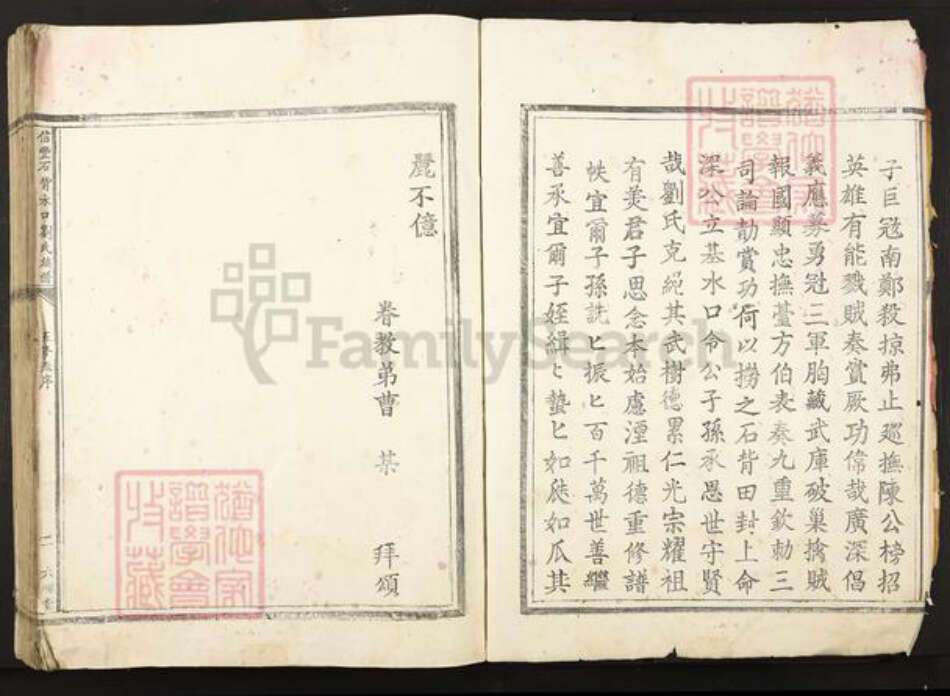 子巨冦南鄭殺掠弗止廵撫陳公榜招
英雄有能戮賊奏賞厥功偉哉廣深倡
義應募勇冠三軍胸藏武庫破巢擒賊
報國顯忠撫臺方伯表奏九重欽勅三
司論劼賞功何以撈之石背田封上命
深公立基水口令公子孫承恩世守賢
哉劉氏克䋲其武樹德累仁光宗耀祖
有羙君子思念本始慮湮祖德重修譜
帙宜爾子孫詵匕振匕百千萬世善繼
善承宜爾子姪緝匕蟄匕如瓞如瓜其
麗不億
眷教弟曹 某 拜頌
信豐石背水口劉氏族譜
序
FamilySearch